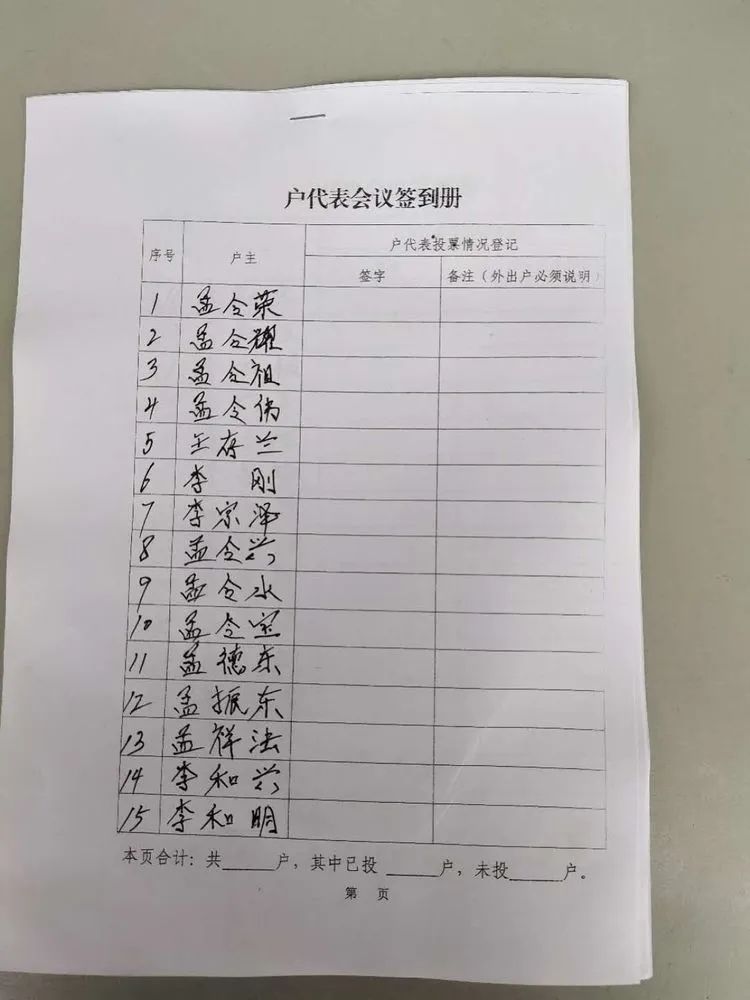 户代表会议签到册
序号 户主 户代表投票情况登记
签字 备注（外出户必须说明）
1 孟令荣
2 孟令耀
3 孟令祖
4 孟令伟
5 王存兰
6 李刚
7 李宗泽
8 孟令兴
9 孟令水
10 孟令宝
11 孟德东
12 孟振东
13 孟祥法
14 李和兴
15 李和明
本页合计：共______户，其中已投______户，未投______户。
第 页